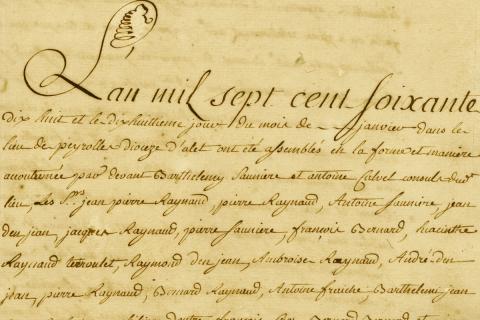 L'an mil sept cent soixante
dix huit et le dixhuittieme jour du mois de janvier dans le
lieu de peyrolle dioceze d'alet ont été assemblés en la forme et maniere
acoutumée par devant Barthelemy Sauniere et antoine Calvel consuls dud.
lieu, Les Srs jean pierre Raynaud, pierre Raynaud, Antoine Sauniere, jean
den jean, jacques Raynaud, pierre Sauniere, françois Bernard, hiacinthe
Raynaud terroulet, Raymond den jean, Ambroise Raynaud, André den
jean, pierre Raynaud, Bernard Raynaud, Antoine fraiche, Barthelemi jean
françois